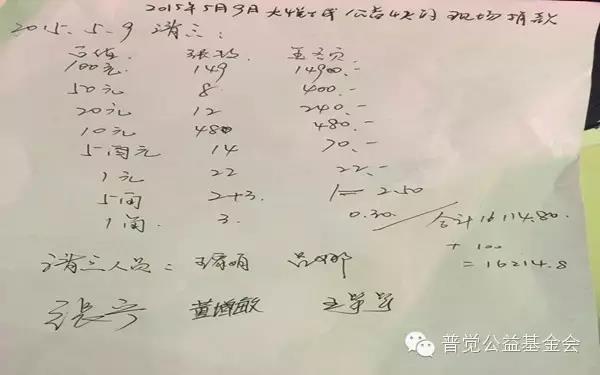 2015年5月9日大悦城公益 现场捐款
2015.5.9 清点:
面值 张数 金额
100元 149 14900.-
50元 8 400.-
20元 12 240.-
10元 48 480.-
5元 14 70.-
1元 22 22.-
5角 2+3. 1= 2.50
1角 3. 0.30 合计16114.80.
+ 100
= 16214.8
清点人员:
张 黄增敏 王
普觉公益基金会